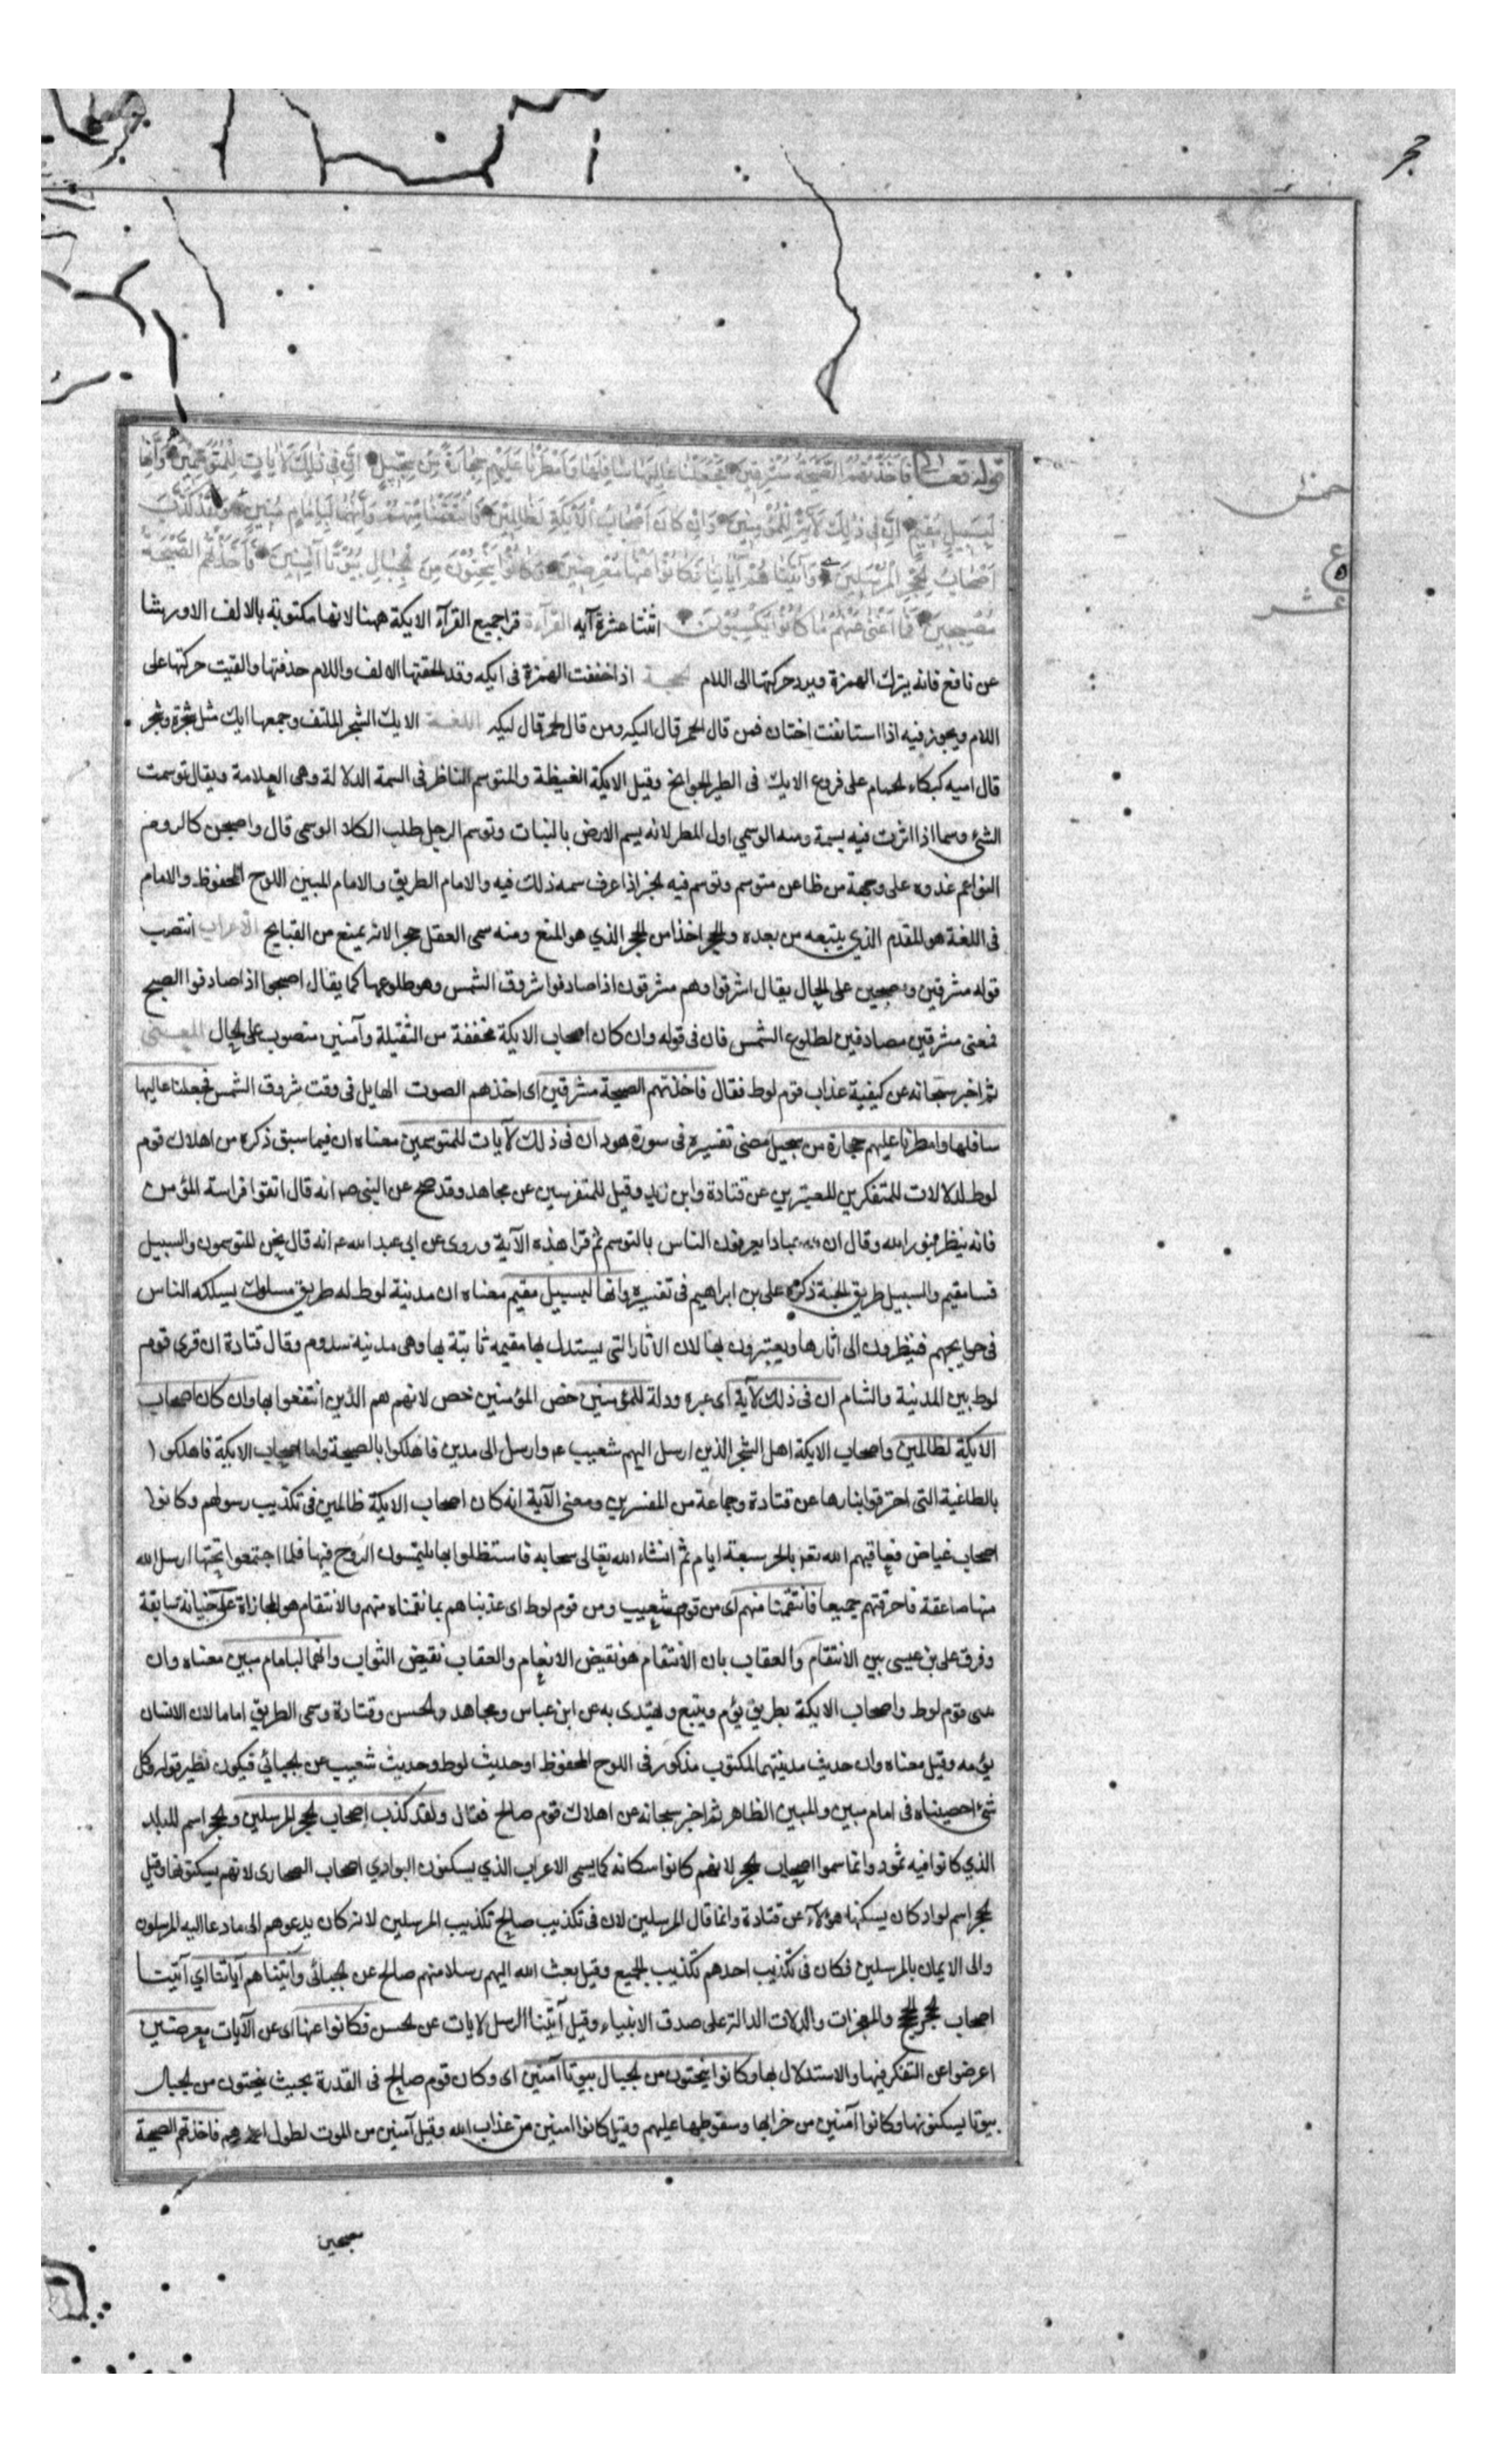 حجر
قوله تعالى فَاَخَذَتْهُمُ الصَّيْحَةُ مُشْرِقِينَ فَجَعَلْنَا عَالِيَهَا سَافِلَهَا وَاَمْطَرْنَا عَلَيْهِمْ حِجَارَةً مِنْ سِجِّيلٍ اِنَّ فِى ذٰلِكَ لَاٰيَاتٍ لِلْمُتَوَسِّمِينَ وَاِنَّهَا
خمس
لَبِسَبِيلٍ مُقِيمٍ اِنَّ فِى ذٰلِكَ لَاٰيَةً لِلْمُؤْمِنِينَ وَاِنْ كَانَ اَصْحَابُ الْاَيْكَةِ لَظَالِمِينَ فَانْتَقَمْنَا مِنْهُمْ وَاِنَّهُمَا لَبِاِمَامٍ مُبِينٍ وَلَقَدْ كَذَّبَ
ع
اَصْحَابُ الْحِجْرِ الْمُرْسَلِينَ وَاٰتَيْنَاهُمْ اٰيَاتِنَا فَكَانُوْا عَنْهَا مُعْرِضِينَ وَكَانُوْا يَنْحِتُوْنَ مِنَ الْجِبَالِ بُيُوْتًا اٰمِنِينَ فَاَخَذَتْهُمُ الصَّيْحَةُ
عشر
مُصْبِحِينَ فَمَا اَغْنٰى عَنْهُمْ مَا كَانُوْا يَكْسِبُوْنَ اثنتا عشرة آيه القرآءة قرا جميع القرآء الايكة ههنا لانها مكتوبة بالالف الا ورشا
عن نافع فانه يترك الهمزة ويرد حركتها الى اللام الحجة اذا خففت الهمزة فى ايكه وقد الحقتها الالف واللام حذفتها والقيت حركتها على
اللام ويجوز فيه اذا استانفت لغتان فمن قال الحمر قال اليكه ومن قال لحمر قال ليكه اللغة الايك الشجر الملتف وجمعها ايك مثل شجرة وشجر
قال اميه كبكاء الحمام على فروع الايك فى الطير الجوانح وقيل الايكة الغيضة والمتوسم الناظر فى السمة الدلالة وهى العلامة ويقال توسمت
الشئ وسما اذا اثرت فيه بسمة ومنه الوسمي اول المطر لانه يسم الارض بالنبات وتوسم الرجل طلب الكلاء الوسمى قال واصبحن كالروم
النواعم غدوه على وجهة من ظاعن متوسم وتوسم فيه الخير اذا عرف سمه ذلك فيه والامام الطريق والامام المبين اللوح المحفوظ والامام
فى اللغة هو المقدم الذي يتبعه من بعده والحجر اخذ من الحجر الذي هو المنع ومنه سمى العقل حجرا لانه يمنع من القبايح الاعراب انتصب
قوله مشرقين ومصبحين على الحال يقال اشرقوا وهم مشرقون اذا صادفوا شروق الشمس وهو طلوعها كما يقال اصبحوا اذا صادفوا الصبح
فمعنى مشرقين مصادفين لطلوع الشمس فان فى قوله وان كان اصحاب الايكة مخففة من الثقيلة وآمنين منصوب على الحال المعنى
ثم اخبر سبحانه عن كيفية عذاب قوم لوط فقال فاخذتهم الصيحة مشرقين اى اخذهم الصوت الهايل فى وقت شروق الشمس فجعلنا عاليها
سافلها وامطرنا عليهم حجارة من سجيل مضى تفسيره فى سورة هود ان فى ذلك لآيات للمتوسمين معناه ان فيما سبق ذكره من اهلاك قوم
لوط لدلالات للمتفكرين المعتبرين عن قتادة وابن زيد وقيل للمتفرسين عن مجاهد وقد صح عن النبى ص انه قال اتقوا فراسة المؤمن
فانه ينظر بنور الله وقال ان لله عبادا يعرفون الناس بالتوسم ثم قرا هذه الآية وروى عن ابى عبد الله ع انه قال نحن المتوسمون والسبيل
فينا مقيم والسبيل طريق الجنة ذكره على بن ابراهيم فى تفسيره وانها لبسبيل مقيم معناه ان مدينة لوط له طريق مسلوك يسلكه الناس
فى حوايجهم فينظرون الى اثارها ويعتبرون بها لان الاثار التى يستدل بها مقيمه ثابتة بها وهى مدينة سدوم وقال قتادة ان قرى قوم
لوط بين المدينة والشام ان فى ذلك لآية اى عبره ودلة للمؤمنين خص المؤمنين خص لانهم هم الذين انتفعوا بها وان كان اصحاب
الايكة لظالمين واصحاب الايكة اهل الشجر الذين ارسل اليهم شعيب ع وارسل الى مدين فاهلكوا بالصيحة واما اصحاب الايكة فاهلكوا
بالطاغية التى احترقوا بنارها عن قتادة وجماعة من المفسرين ومعنى الآية انه كان اصحاب الايكة ظالمين فى تكذيب رسولهم وكانوا
اصحاب غياض فعاقبهم الله تع بالحر سبعة ايام ثم انشاء الله تعالى سحابه فاستظلوا بها يلتمسون الروح فيها فلما اجتمعوا تحتها ارسل الله
منها صاعقة فاحرقتهم جميعا فانتقمنا منهم اى من قوم شعيب ومن قوم لوط اى عذبناهم بما نقمناه منهم والانتقام هو المجازاة على جناية سابقة
وفرق على بن عيسى بين الانتقام والعقاب بان الانتقام هو نقيض الانعام والعقاب نقيض الثواب وانهما لبامام مبين معناه وان
قوم لوط واصحاب الايكة بطريق يؤم ويتبع ويهتدى به عن ابن عباس ومجاهد والحسن وقتادة وسمى الطريق اماما لان الانسان
يؤمه وقيل معناه وان حديث مدينتهما المكتوب مذكور فى اللوح المحفوظ او حديث لوط وحديث شعيب عن الجبائي فيكون نظير قوله وكل
شئ احصيناه فى امام مبين والمبين الظاهر ثم اخبر سبحانه عن اهلاك قوم صالح فقال ولقد كذب اصحاب الحجر المرسلين والحجر اسم البلد
الذي كانوا فيه ثمود وانما سموا اصحاب الحجر لانهم كانوا سكانه كما يسمى الاعراب الذي يسكنون البوادي اصحاب الصحارى لانهم يسكنونها وقيل
الحجر اسم لواد كان يسكنها هؤلآء عن قتادة وانما قال المرسلين لان فى تكذيب صالح تكذيب المرسلين لانه كان يدعوهم الى ما دعا اليه المرسلون
والى الايمان بالمرسلين فكان فى تكذيب احدهم تكذيب الجميع وقيل بعث الله اليهم رسلا منهم صالح عن الجبائى وآتيناهم آياتنا اي آتينا
اصحاب الحجر الحجج والمعجزات والدلالات الدالة على صدق الانبياء وقيل آتينا الرسل الايات عن الحسن فكانوا عنها اى عن الآيات معرضين
اعرضوا عن التفكر فيها والاستدلال بها وكانوا ينحتون من الجبال بيوتا آمنين اى وكان قوم صالح فى القدرة بحيث ينحتون من الجبال
بيوتا يسكنونها وكانوا آمنين من خرابها وسقوطها عليهم وقيل كانوا امنين من عذاب الله وقيل آمنين من الموت لطول اعمارهم فاخذتهم الصيحة
مصبحين